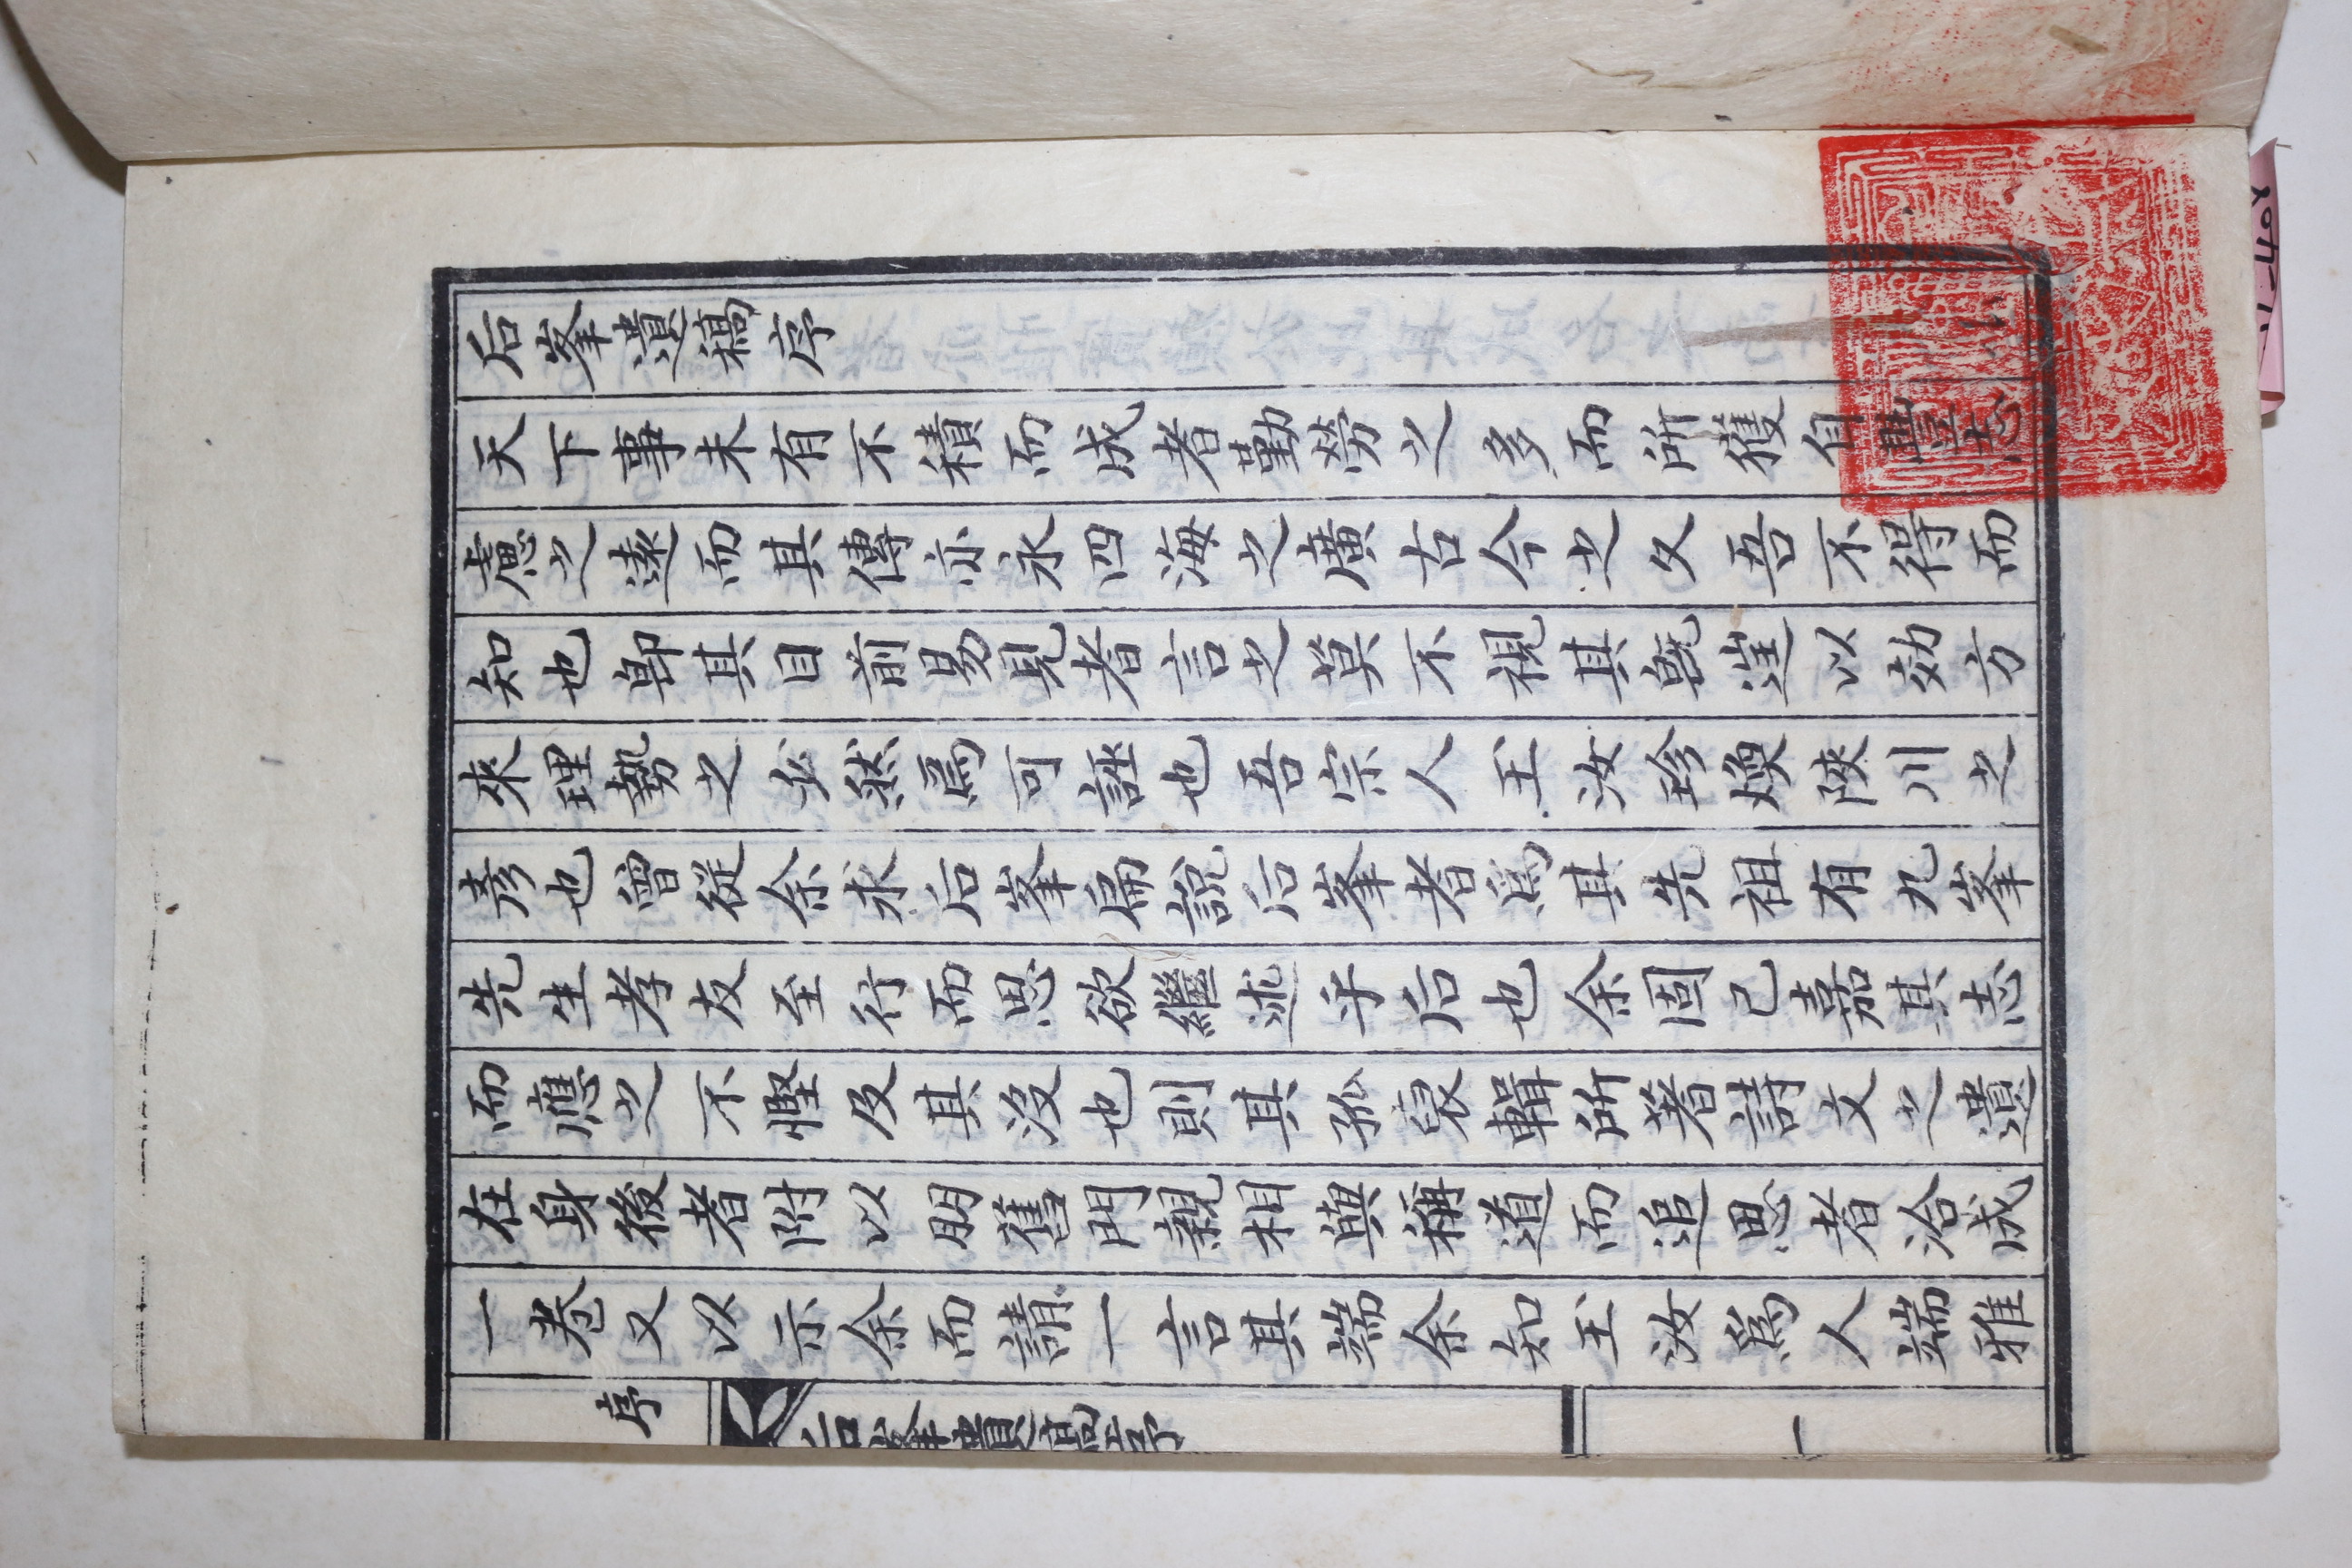 后峯遺稿序
天下事未有不積而成者勤勞之多而所獲自豐志
慮之遠而其傳亦永四海之廣古今之久吾不得而
知也卽其目前易見者言之莫不視其旣徃以効方
來理勢之必然焉可誣也吾宗人玉汝珍煥陜川之
彥也曾從余求后峯扁說后峯者爲其先祖有九峯
先生孝友至行而思欲繼述乎后也余固已嘉其志
而應之不慳及其沒也則其孤裒輯所著詩文之遺
在身後者附以朋舊門親相與稱道而追思者洽成
一卷又以示余而請一言其端余知玉汝爲人端雅
序
后峯遺稿序
一